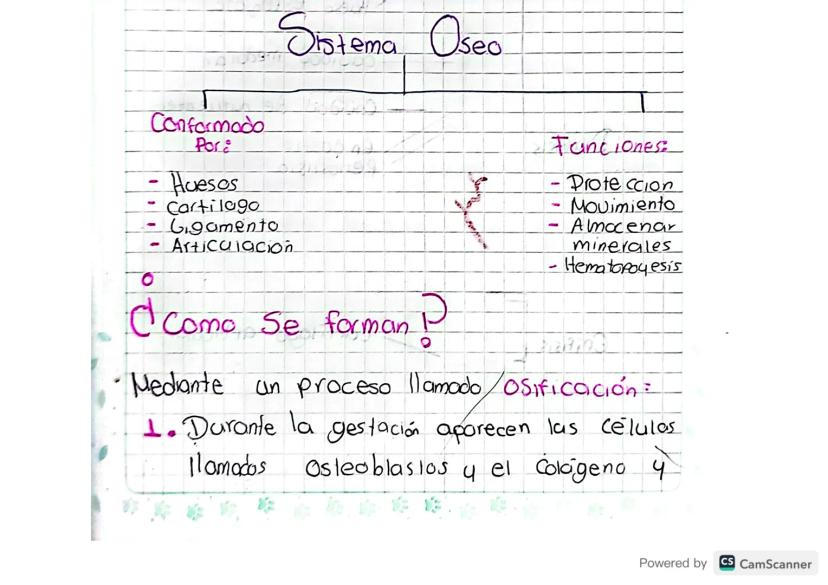 Sistema Oseo
Conformado
Por:
- Huesos
- Cartilago
- Ligamento
- Articulación
Funciones:
- Proteccion
- Movimiento
- Almacenar
minerales
- Hematopoyesis
¿Como Se forman?
Mediante un proceso llamado osificación:
1. Durante la gestación aparecen las células
llamados Osteoblastos y el Colágeno y
Powered by CS CamScanner